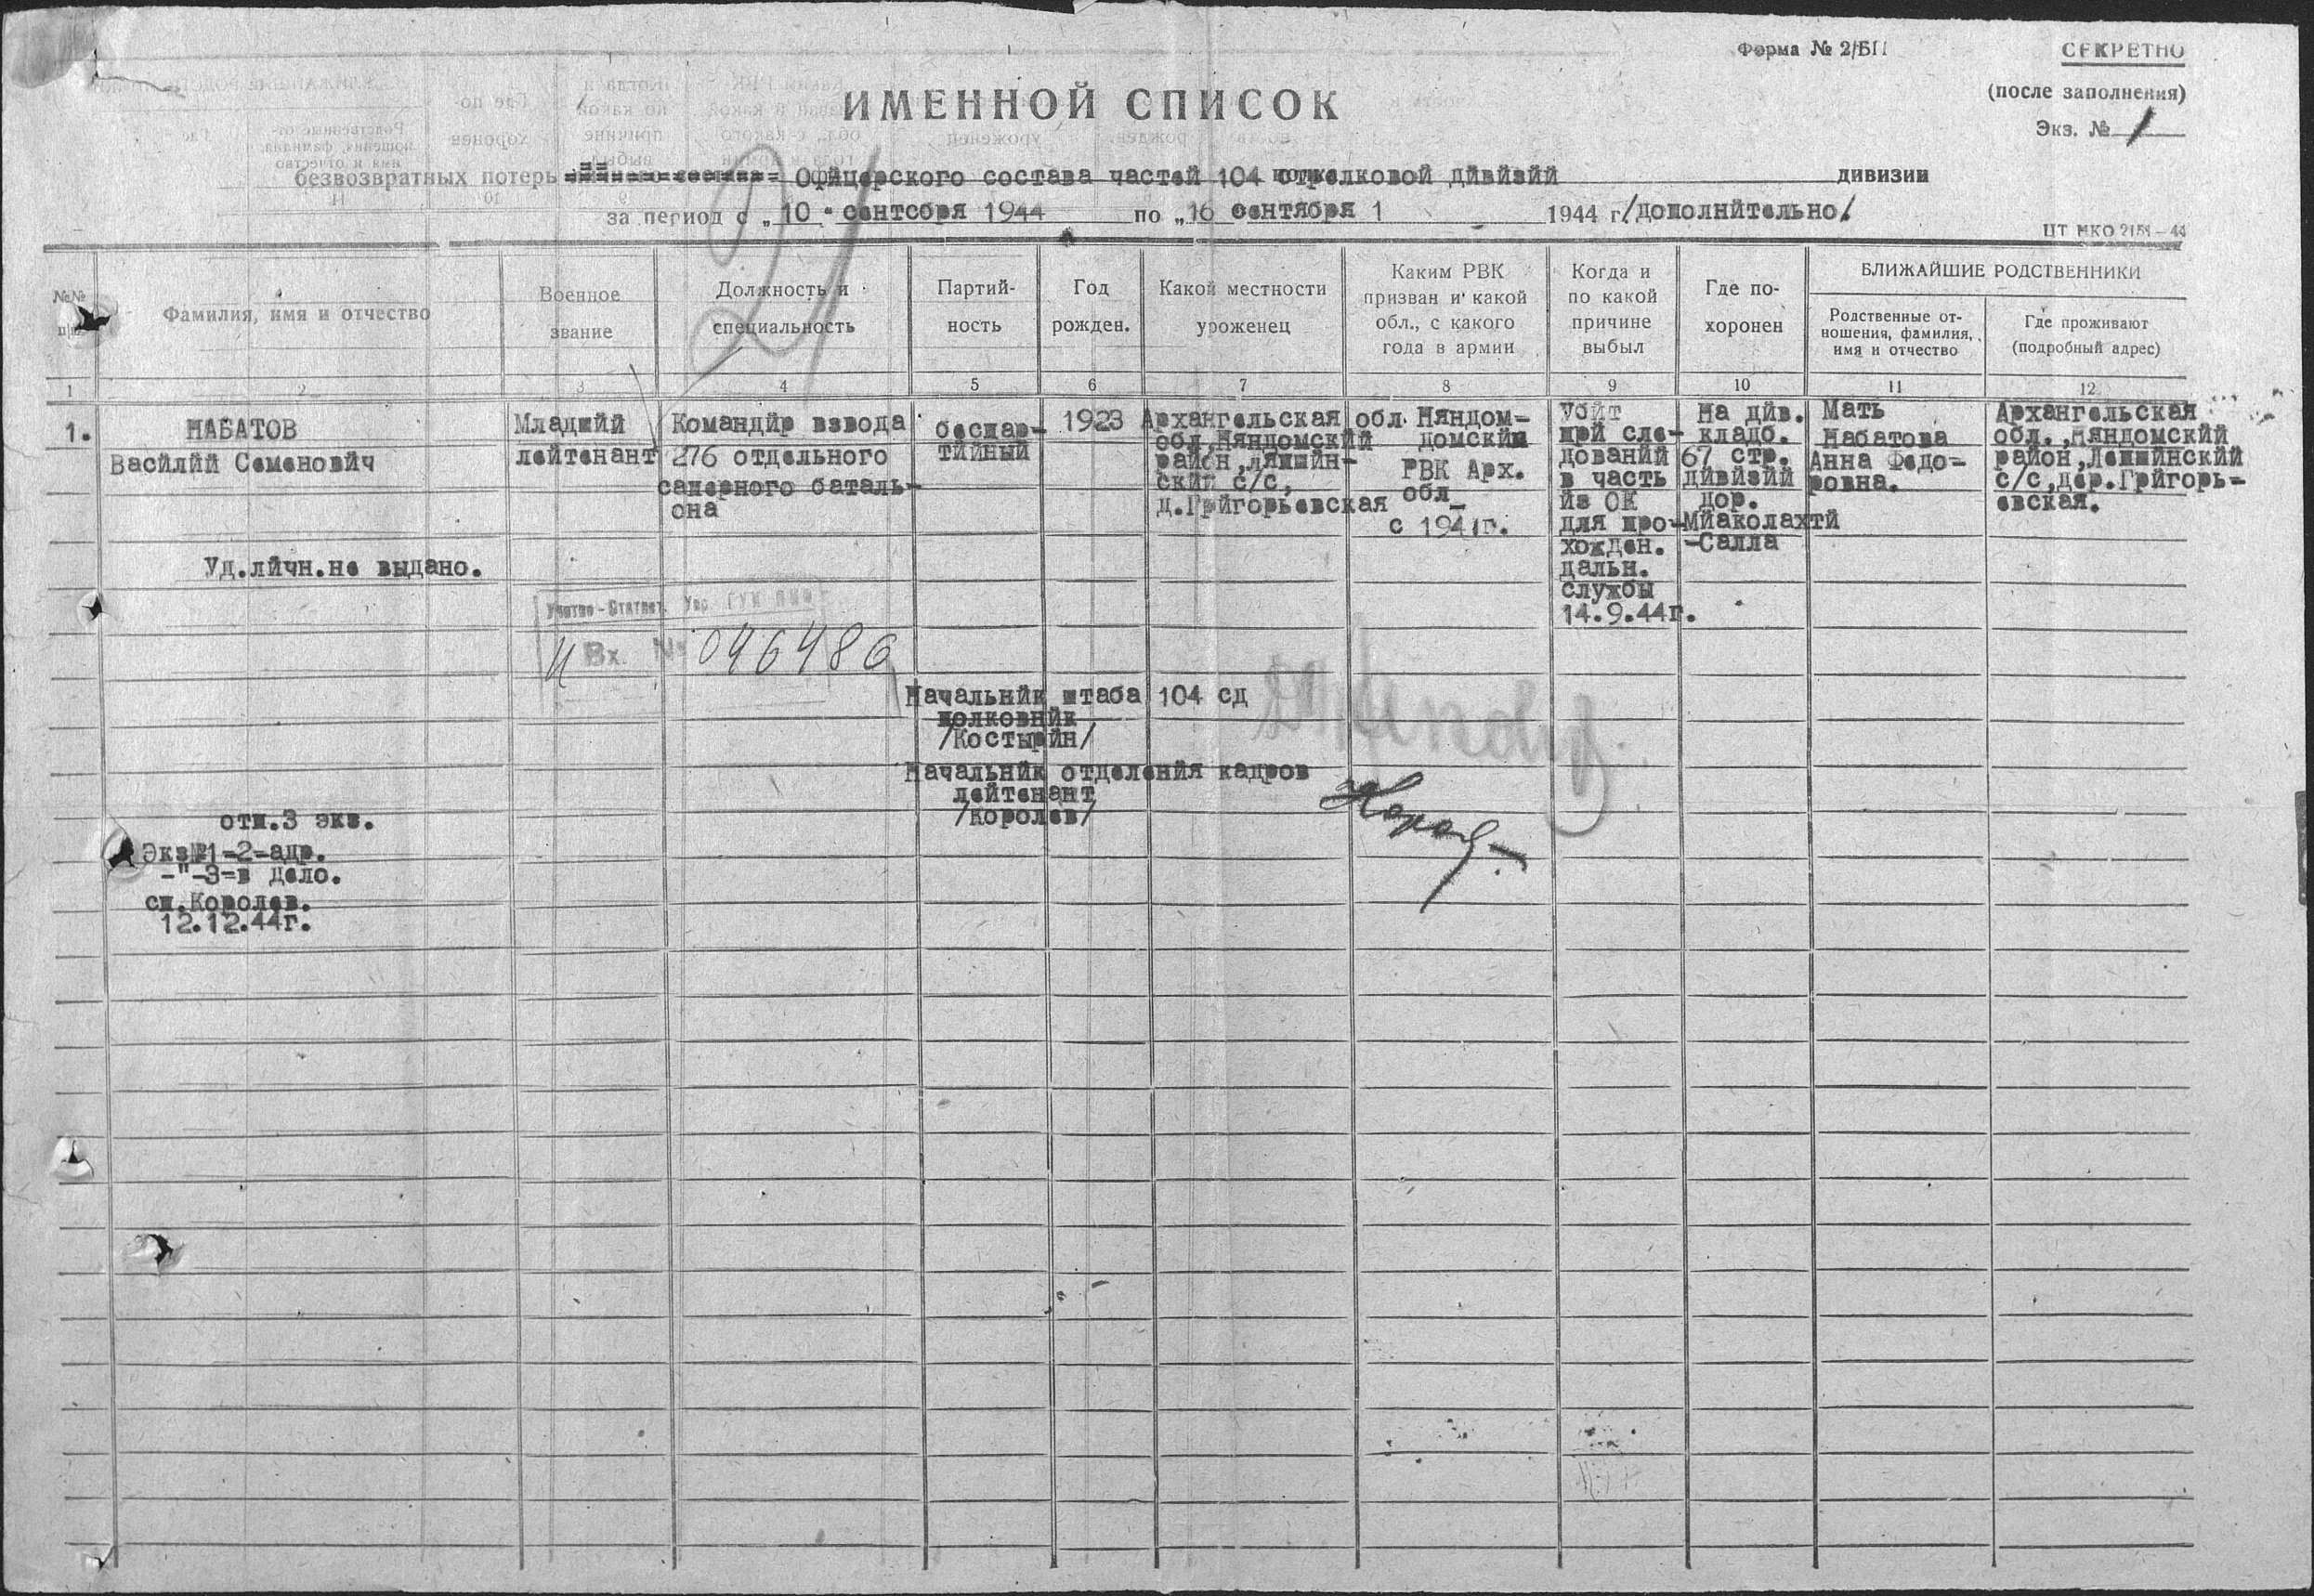 Форма № 2/БП
СЕКРЕТНО
(после заполнения)
Экз. № 1
ИМЕННОЙ СПИСОК
безвозвратных потерь офицерского состава частей 104 стрелковой дивизии дивизии
за период с „10" сентября 1944 по „16 сентября 1 1944 г/дополнительно/
ЦТ НКО 2158-44
21
№№ п/п
Фамилия, имя и отчество
Военное звание
Должность и специальность
Партий-
ность
Год рожден.
Какой местности уроженец
Каким РВК
призван и какой
обл., с какого
года в армии
Когда и
по какой
причине
выбыл
Где по-
хоронен
БЛИЖАЙШИЕ РОДСТВЕННИКИ
Родственные от-
ношения, фамилия,
имя и отчество
Где проживают
(подробный адрес)
1 2 3 4 5 6 7 8 9 10 11 12
1.
НАБАТОВ
Василий Семенович
Уд.личн.не выдано.
Младший
лейтенант
Командир взвода
276 отдельного
саперного баталь-
она
беспар-
тийный
1923
Архангельская
обл,Няндомский
район,Ляпшин-
ский с/с,
д.Григорьевская
обл. Няндом-
домский
РВК Арх.
обл
с 1941г.
Убит
при сле-
дований
в часть
из ОК
для про-
хожден.
дальн.
службы
14.9.44г.
На див.
кладб.
67 стр.
дивизии
дор.
Миаколахти
-Салла
Мать
Набатова
Анна Федо-
ровна.
Архангельская
обл.,Няндомский
район,Лепшинский
с/с,дер.Григорь-
евская.
Вх. № 046486
Начальник штаба 104 сд
полковник
/Костырин/
Начальник отделения кадров
лейтенант
/Королев/
отп.3 экз.
Экз№1-2-адр.
-"-3-в дело.
сп.Королев.
12.12.44г.